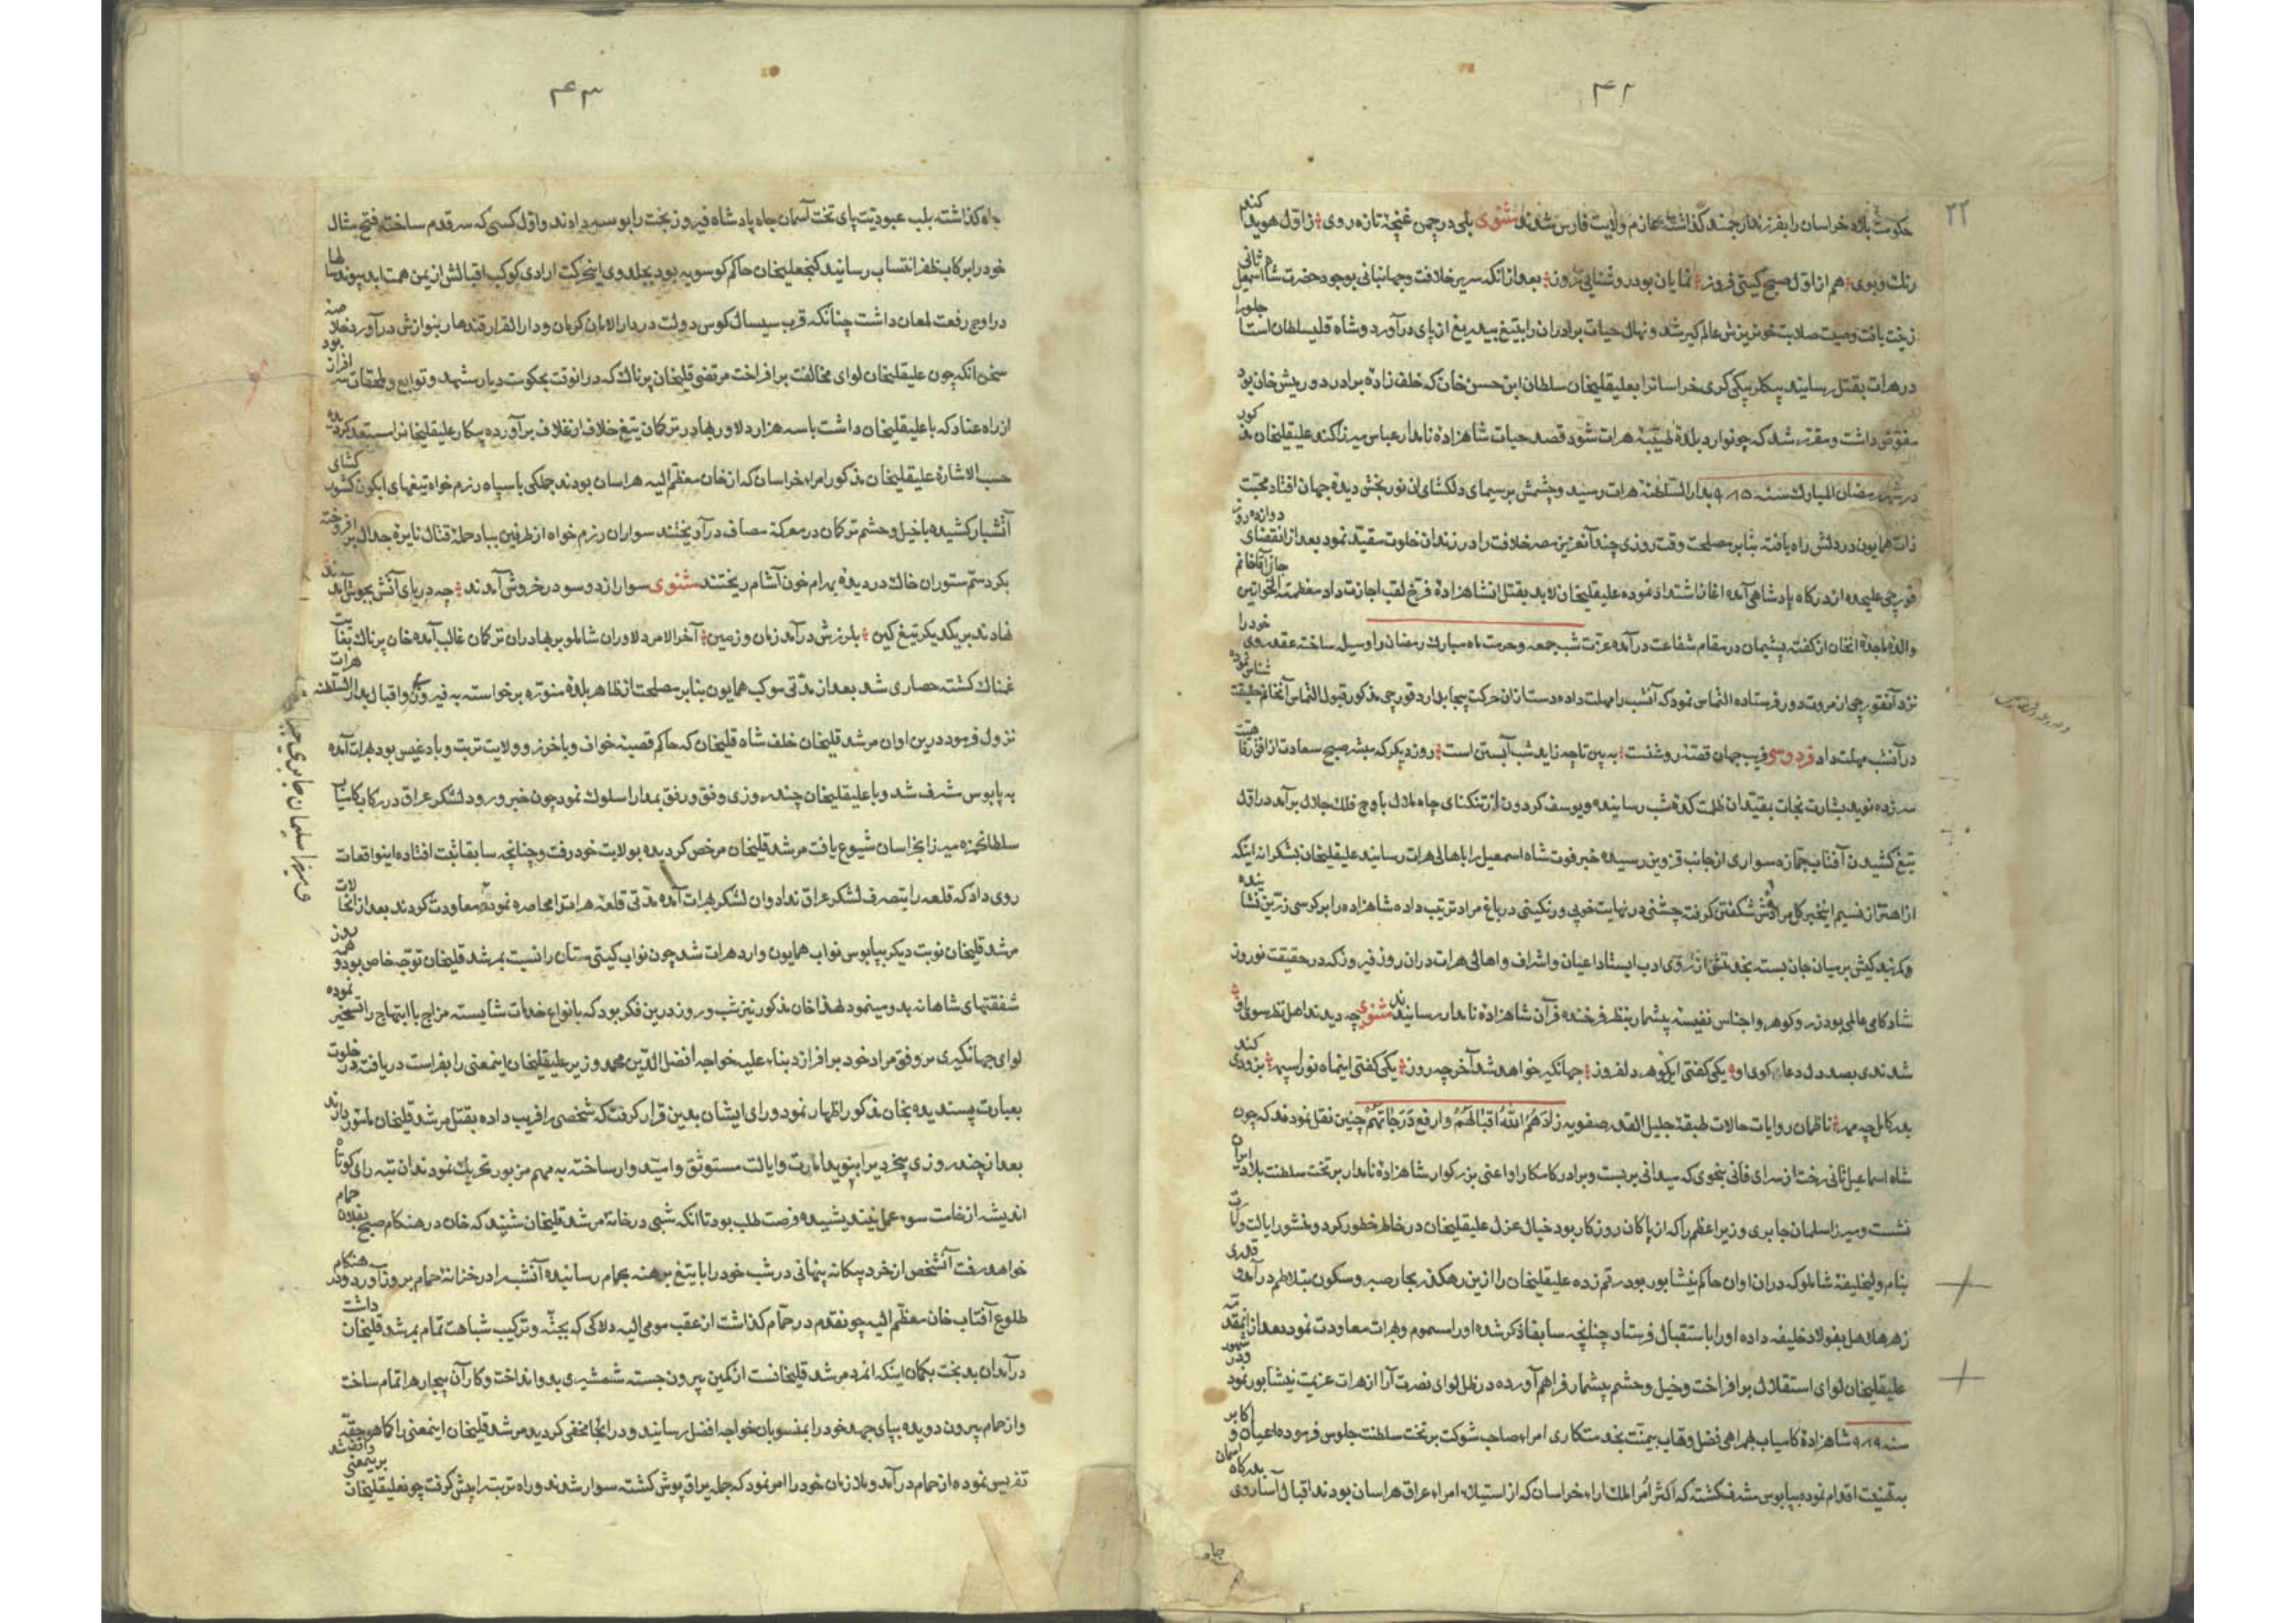 ۴۲
۳۲
حکومت بلاد خراسان را بفرزند ارجمند گذاشته عازم ولایت فارس شدند مثنوی بلی در چمن غنچهٔ تازه روی زاول هویدا کند
رنک و بوی هم از اول صبح کیتی فروز نمایان بود روشنایی روز بعد از انکه سریر خلافت و جهانبانی بوجود حضرت شاه اسمعیل ثانی
زینت یافت وصیت صلابت خونریزش عالم کیر شد و نهال حیات برادران را بتیغ بیدریغ از پای درآورد و شاه قلی سلطان استاجلو را
در هرات بقتل رسانید بیکلر بیکی کری خراسانرا بعلیقلیخان سلطان ابن حسن خان که خلف زادهٔ برادر دورمیش خان بود
مفوض داشت و مقرر شد که چون وارد بلدهٔ طیبهٔ هرات شود قصد حیات شاهزادهٔ نامدار عباس میرزا کند علیقلیخان مذکور
در شهر رمضان المبارک سنه ۹۸۵ بدار السلطنهٔ هرات رسید و چشمش بر سیمای دلکشای ان نور بخش دیدهٔ جهان افتاد محبت
ذات همایون در دلش راه یافته بنابر مصلحت وقت روزی چند آن عزیز مصر خلافت را در زندان خلوت مقید نمود بعد از انقضای دوازده روز
قورچی علیحده از درکاه پادشاهی آمده اغاز اشتداد نموده علیقلیخان لابد بقتل انشاهزادهٔ فرخ لقب اجازت داد معظمة الخواتین جان آقا خانم
والدهٔ ماجدهٔ انخان از کفته پشیمان در مقام شفاعت درآمده عزت شب جمعه و حرمت ماه مبارک رمضان را وسیله ساخته عقد روی خود را
نزد آنقورچی از مروت دور فرستاده التماس نمود که آنشب را مهلت داده دست ازان حرکت بیجا بدارد قورچی مذکور قبول التماس آنخانم حقیقت شناس نموده
در آنشب مهلت داد فردوسی فریب جهان قصهٔ روشنست به بین تا چه زاید شب آبستن است روز دیکر که مبشر صبح سعادت از افق
سر زده نوید بشارت نجات بمقیدان ظلمت کدهٔ شب رسانیده و یوسف کردون از تنکنای چاه ملال باوج فلک جلال برآمد در اول
تیغ کشیدن آفتاب جمازه سواری از جانب قزوین رسیده خبر فوت شاه اسمعیل را باهالی هرات رسانید علیقلیخان بشکرانه اینکه
از اهتزاز نسیم اینخبر کل مرادش شکفتن کرفت جشنی در نهایت خوبی و رنکینی در باغ مراد ترتیب داده شاهزاده را بر کرسی زرین نشانیده
و کمر بندکیش بر میان جان بسته بخدمتش از روی ادب ایستاد اعیان و اشراف و اهالی هرات دران روز فیروز که در حقیقت نوروز
شادکامی عالمی بود زر و کوهر و اجناس نفیسهٔ بیشمار بنظر فرخنده فرآن شاهزادهٔ نامدار رسانیدند مثنوی چه دیدند اهل نظر سوی او
شدندی بصد دل دعا کوی او یکی کفتی این کوهر دلفروز جهانکیر خواهد شد آخر چه روز یکی کفتی اینماه نور سپهر بزودی کند
بدر کامل چه مهر ناظمان روایات حالات طبقهٔ جلیل القدر صفویه زادهم الله اقبالهم وارفع درجاتهم چنین نقل نموده‌اند که چون
شاه اسماعیل ثانی رخت از سرای فانی بنحوی که میدانی بربست و برادر کامکار او اعنی بزرکوار شاهزادهٔ نامدار بر تخت سلطنت بلاد ایران
نشست و میرزا سلمان جابری وزیر اعظم را که از پاکان روزکار بود خیال عزل علیقلیخان در خاطر خطور کرد و منشور ایالت
بنام ولیخلیفهٔ شاملو که دران اوان حاکم نیشابور بود رقم زده علیقلیخان را ازین رهکذر بحار صبر و سکون بتلاطم درآمد
زهر هلاهل بفولاد خلیفه داده او را باستقبال فرستاد چنانچه سابقا ذکر شده او را مسموم و بهرات معاودت نمود بعد از اینمقدمه
علیقلیخان لوای استقلال برافراخت و خیل و حشم بیشمار فراهم آورده در ظل لوای نصرت آرا از هرات عزیمت نیشابور نمود و در شهور
سنه ۹۸۹ شاهزادهٔ کامیاب بهمراهی فضل وهاب بیمنت بخدمتکاری امراء صاحب شوکت بر تخت سلطنت جلوس فرموده اعیان و اکابر
به تهنیت اقدام نموده بپابوس مشرف کشته که اکثر امراء ملک اراء خراسان که از استیلاء امراء عراق هراسان بودند اقبال آسا روی بدرکاه آسمان
جاه
۴۳
جاه کذاشته بلب عبودیت پای تخت آسمان جاه پادشاه فیروز بخت را بوسه دادند و اول کسی که سر قدم ساخته فتح مثال
خود را برکاب ظفر انتساب رسانید کنجعلیخان حاکم کوسویه بود بجلدوی اینحرکت ارادی کوکب اقبالش از یمن همت ابد پیوند سالها
در اوج رفعت لمعان داشت چنانکه قریب سیسال کوس دولت در دار الامان کرمان و دار القرار قندهار بنوازش درآورد خلاصه
سخن انکه چون علیقلیخان لوای مخالفت برافراخت مرتضی قلیخان پرناک که درانوقت بحکومت دیار مشهد و توابع و ملحقات سرافراز بود
از راه عناد که با علیقلیخان داشت با سه هزار دلاور بهادر ترکان تیغ خلاف از غلاف برآورده پیکار علیقلیخانرا مستعد کردید
حسب الاشارهٔ علیقلیخان مذکور امراء خراسان که از خان معظم الیه هراسان بودند جملکی با سپاه رزم خواه تیغهای ابکون کشور کشای
آتشبار کشیده با خیل و حشم ترکان در معرکهٔ مصاف درآویختند سواران رزم خواه از طرفین بباد حملهٔ قتال نایرهٔ جدال برافروخته
بکرد سم ستوران خاک در دیدهٔ بهرام خون آشام ریختند مثنوی سواران دو سو در خروش آمدند چه دریای آتش بجوش آمدند
نهادند بر یکدیکر تیغ کین بلرزش درآمد زمان و زمین آخر الامر دلاوران شاملو بر بهادران ترکمان غالب آمده خان پرناک بغایت
غمناک کشته حصاری شد بعد از مدتی موکب همایون بنابر مصلحت از ظاهر بلدهٔ منوره برخواسته به فیروزی و اقبال بدار السلطنه هرات
نزول فرمود درین اوان مرشد قلیخان خلف شاه قلیخان که حاکم قصبهٔ خواف و باخرز و ولایت تربت و بادغیس بود بهرات آمده
به پابوس مشرف شد و با علیقلیخان چند روزی وفق و رفق بمدارا سلوک نمود چون خبر ورود لشکر عراق در رکاب کامیاب
سلطانحمزه میرزا بخراسان شیوع یافت مرشد قلیخان مرخص کردیده بولایت خود رفت و چنانچه سابقا ثبت افتاده اینواقعات
روی داد که قلعه را بتصرف لشکر عراق نداد و ان لشکر بهرات آمده مدتی قلعهٔ هرات را محاصره نموده معاودت کردند بعد از انحالات
مرشد قلیخان نوبت دیکر بپابوس نواب همایون وارد هرات شد چون نواب کیتی ستان را نسبت بمرشد قلیخان توجه خاص بود و همه روز
شفقتهای شاهانه بدو مینمود لهذا خان مذکور نیز شب و روز درین فکر بود که بانواع خدمات شایسته مزاج با ابتهاج را تسخیر نموده
لوای جهانکیری بر وفق مراد خود برافرازد بناء علیه خواجه افضل الدین محمد وزیر علیقلیخان اینمعنی را بفراست دریافته در خلوت
بعبارت پسندیده بخان مذکور اظهار نمود و رای ایشان بدین قرار کرفت که شخصی را فریب داده بقتل مرشد قلیخان مامور دارند
بعد از چند روزی بیخردیرا بنوید امارت و ایالت مستوثق و امیدوار ساخته به مهم مزبور تحریک نمودند ان تیره رای کوتاه
اندیشه از خامت سوء عمل نیندیشیده فرصت طلب بود تا انکه شبی در خانهٔ مرشد قلیخان شنید که خان در هنکام صبح بفلان حمام
خواهد رفت آنشخص از خرد بیکانه پنهانی در شب خود را با تیغ برهنه بحمام رسانیده آنشب را در خزانهٔ حمام بروز آورد و در هنکام
طلوع آفتاب خان معظم الیه چون قدم در حمام کذاشت از عقب مومی الیه دلاکی که بجثه و ترکیب شباهت تمام بمرشد قلیخان داشت
درآمد ان بدبخت بکمان اینکه انمرد مرشد قلیخانست از کمین بیرون جسته شمشیری بدو انداخت و کار آن بیچاره را تمام ساخت
و از حمام بیرون دویده بپای جهد خود را بمنسوبان خواجه افضل رسانید و در انجا مخفی کردید مرشد قلیخان اینمعنی را کماهو حقه
تفرس نموده از حمام درآمد و ملازمان خود را امر نمود که جمله یراق پوش کشته سوار شدند و راه تربت را پیش کرفت چون علیقلیخان برینمعنی واقف شد
میرزا سلیمان جابری